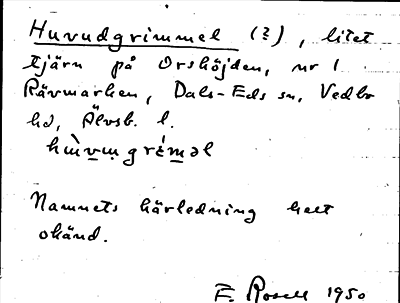 Huvudgrimmel (?), litet
tjärn på Orshöjden, nr 1
Rävmarken, Dals-Eds sn, Vedbo
hd, Älvsb. l.
Namnets härledning helt
okänd.
F. Rosell 1950